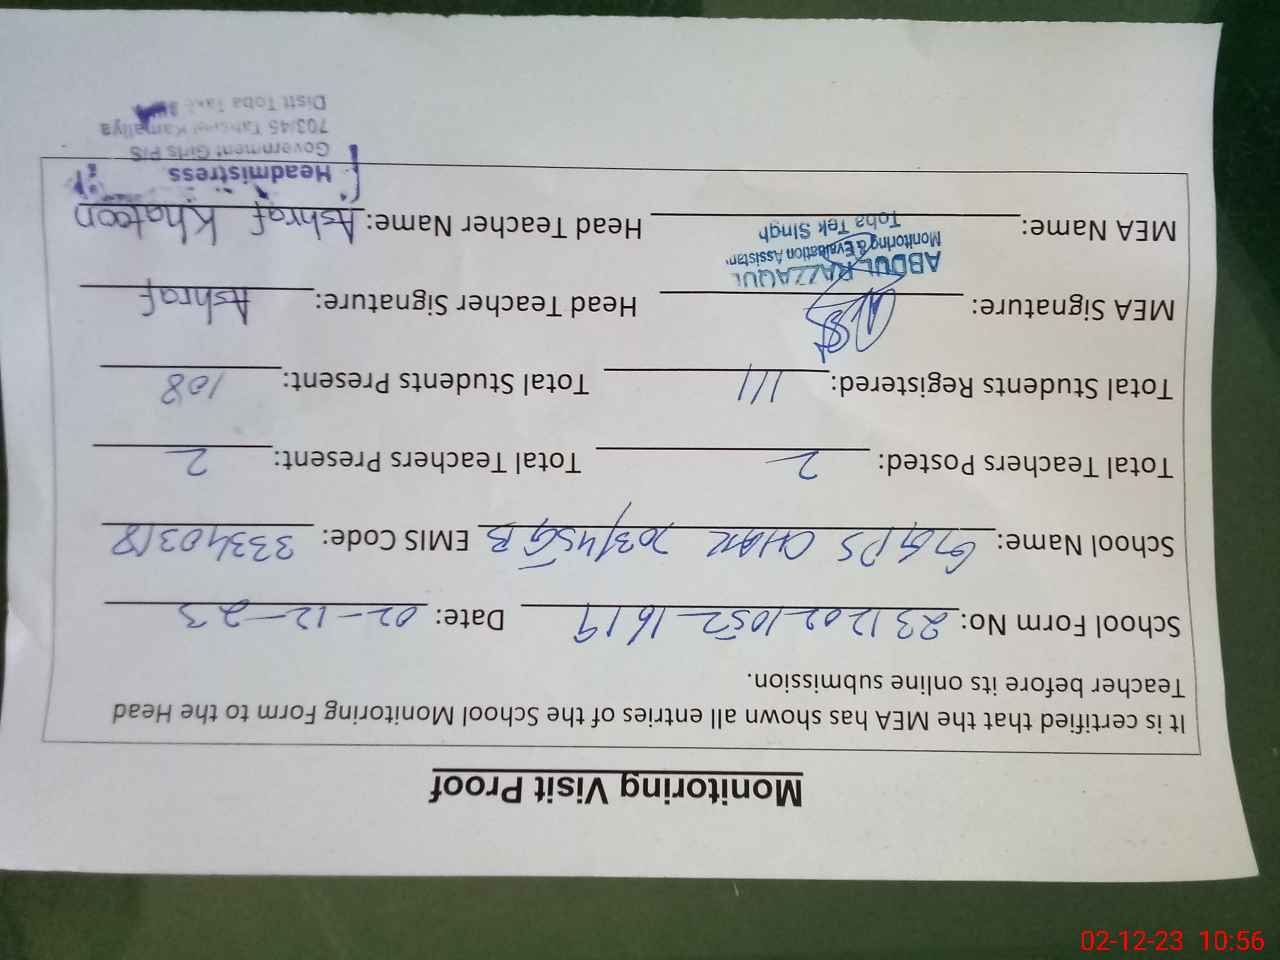 Monitoring Visit Proof
It is certified that the MEA has shown all entries of the School Monitoring Form to the Head
Teacher before its online submission.
School Form No: 231202 1052 1619 Date: 02-12-23
School Name: GGPS CHAK 703/45GB EMIS Code: 33340318
Total Teachers Posted: 2 Total Teachers Present: 2
Total Students Registered: 111 Total Students Present: 108
MEA Signature: Head Teacher Signature: Ashraf
ABDUL RAZZAQUE
Monitoring & Evaluation Assistant
Toba Tek Singh
MEA Name: Head Teacher Name: Ashraf Khatoon
Headmistress
Government Girls P/S
703/45 Tahsil Kamaliya
Distt Toba Tek
02-12-23 10:56